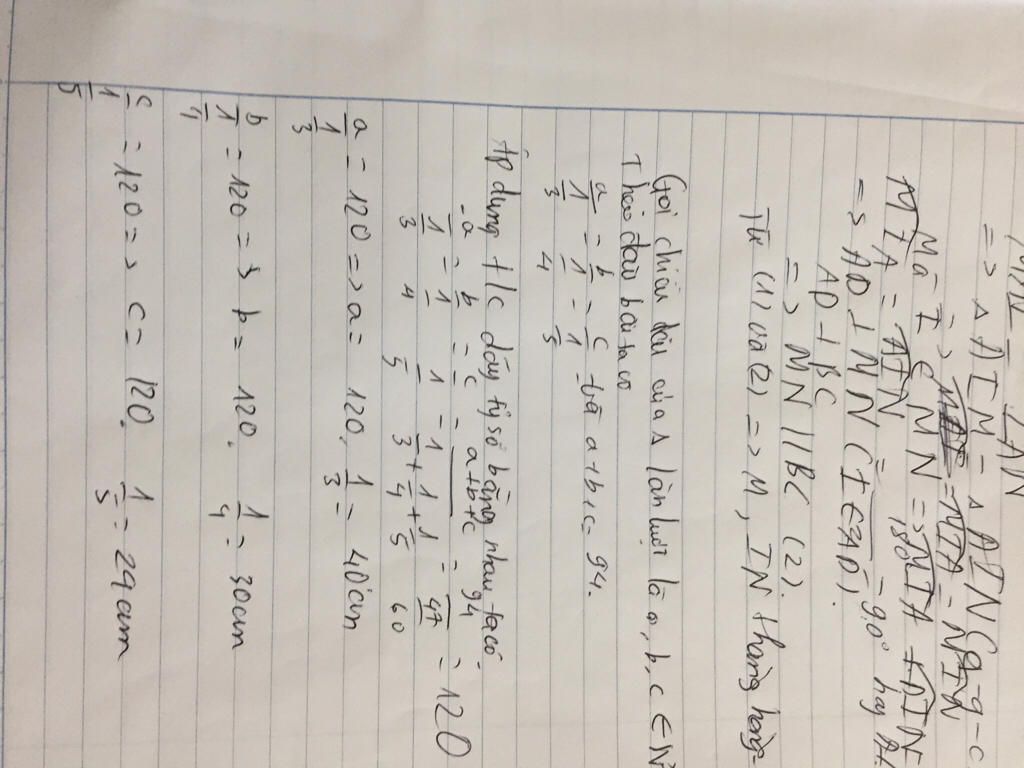 => Δ AIM = Δ AIN (c-g-c
=> MIA = NIA
Mà I ∈ MN => MIA + AIN
MIA = AIN = 180° = 90° hay AI
=> AD ⊥ MN (I ∈ AD).
AD ⊥ BC
=> MN // BC (2).
Từ (1) và (2) => M, I N thẳng hàng
Gọi chiều dài của Δ lần lượt là a, b, c ∈ N*
Theo đầu bài ta có
a/(1/3) = b/(1/4) = c/(1/5) và a+b+c = 94.
Áp dụng t/c dãy tỷ số bằng nhau ta có.
a/(1/3) = b/(1/4) = c/(1/5) = (a+b+c)/(1/3+1/4+1/5) = 94/(47/60) = 120
a/(1/3) = 120 => a = 120. 1/3 = 40cm
b/(1/4) = 120 => b = 120. 1/4 = 30cm
c/(1/5) = 120 => c = 120. 1/5 = 24cm